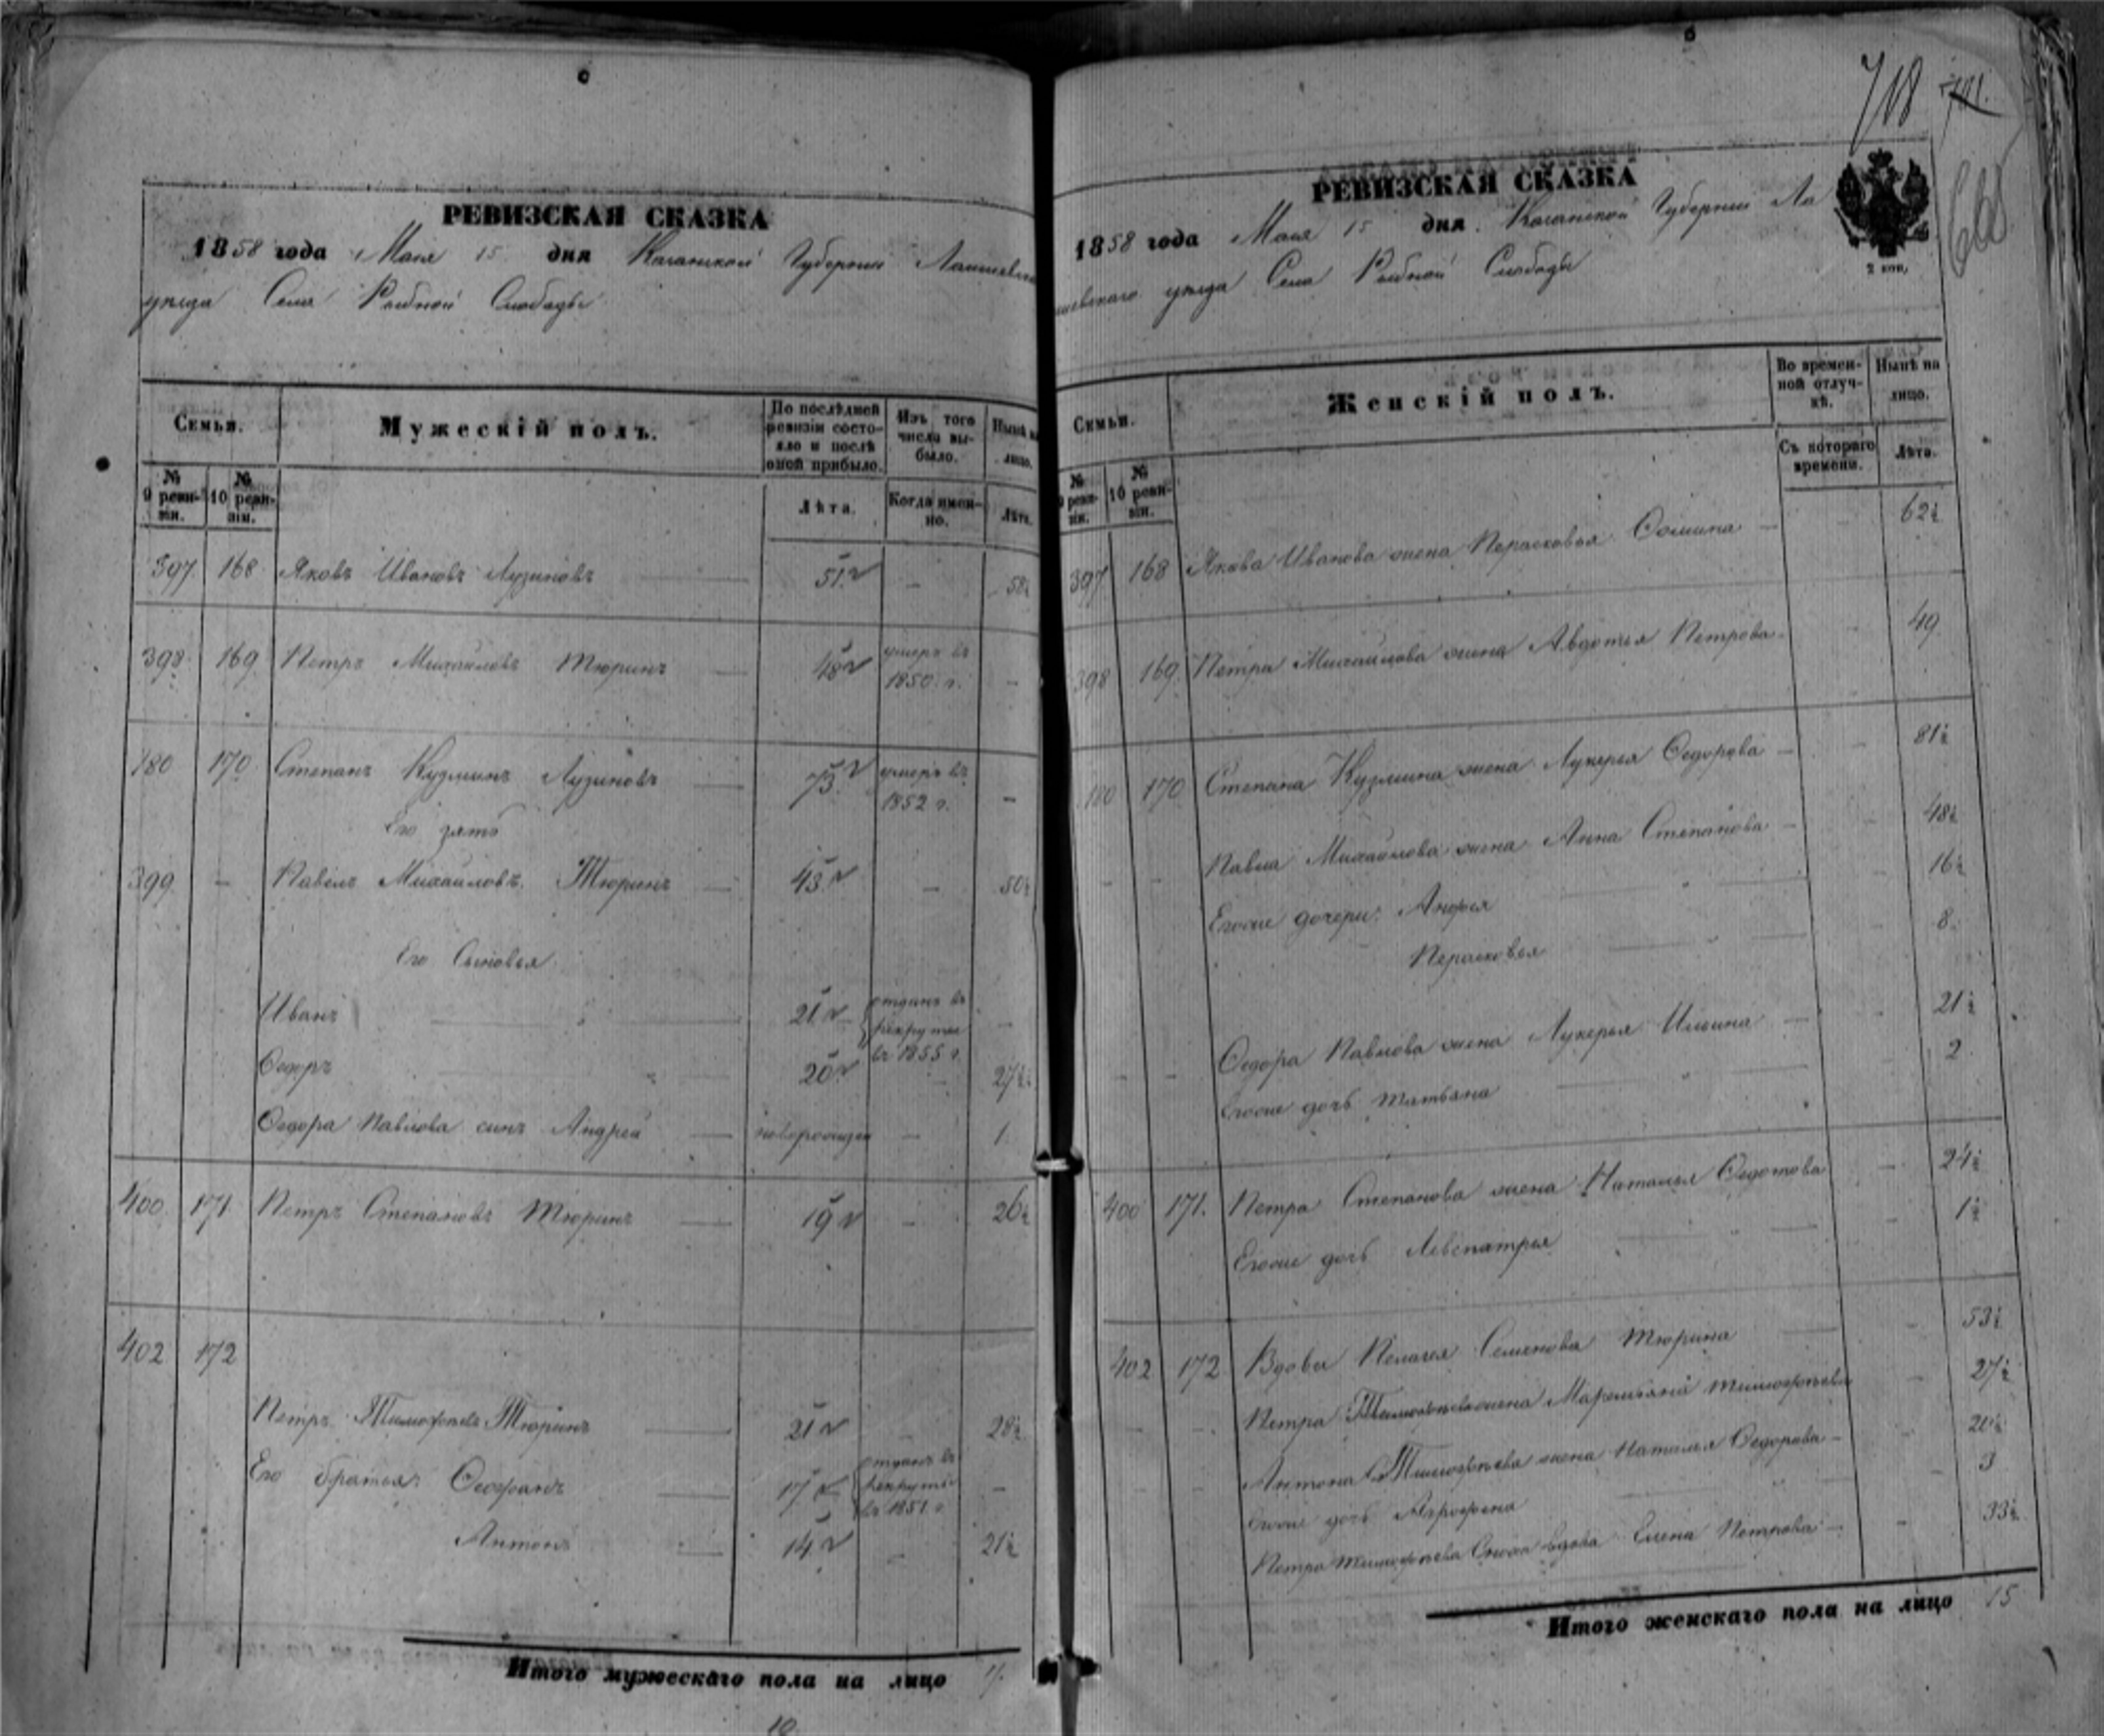 РЕВИЗСКАЯ СКАЗКА
1858 года Мая 15 дня Казанской Губернии Лаишевска
уѣзда Села Рыбной Слободы
Семьи.
Мужескій полъ.
По послѣдней ревизіи состояло и послѣ оной прибыло.
Изъ того числа выбыло.
Нынѣ на лицо.
№ 9 ревизіи.
№ 10 ревизіи.
Лѣта.
Когда именно.
Лѣта.
397 168 Яковъ Ивановъ Лузиновъ 51 - 58½
398 169 Петръ Михайловъ Тюринъ 48 умеръ въ 1850 г. -
180 170 Степанъ Кузминъ Лузиновъ 75 умеръ въ 1852 г. -
Его зять
399 - Павелъ Михайловъ Тюринъ 43 - 50½
Его Сыновья
Иванъ " 21 отданъ въ рекруты въ 1855 г. -
Ѳедоръ " 20 - 27½
Ѳедора Павлова сынъ Андрей новорожден - 1
400 171 Петръ Степановъ Тюринъ 19 - 26½
402 172
Петръ Тимофѣевъ Тюринъ 21 28½
Его братья: Ѳеофанъ 17 отданъ въ рекруты въ 1851 г. -
Антонъ 14 - 21½
Итого мужескаго пола на лицо
10
718 701.
668
РЕВИЗСКАЯ СКАЗКА
1858 года Мая 15 дня. Казанской Губернии Ла
ишевскаго уѣзда Села Рыбной Слободы
2 коп.
Семьи.
Женскій полъ.
Во временной отлучкѣ.
Нынѣ на лицо.
№ 9 ревизіи.
№ 10 ревизіи.
Съ котораго времени.
Лѣта.
397 168 Якова Иванова жена Парасковья Ѳомина - 62½
398 169 Петра Михайлова жена Авдотья Петрова - 49
180 170 Степана Кузмина жена Лукерья Ѳедорова - 81½
- - Павла Михайлова жена Анна Степанова - 48½
Егоже дочери: Анфья 16½
Парасковья " 8.
- - Ѳедора Павлова жена Лукерья Ильина - 21½
Егоже дочь Татьяна " 2
400 171. Петра Степанова жена Наталья Ѳедотова - 24½
Егоже дочь Левспатрья - 1½
402 172 Вдова Пелагея Семенова Тюрина - 53½
- - Петра Тимофѣева жена Марємьяна Тимофѣева - 27½
- - Антона Тимофѣева жена Наталья Ѳедорова - 20½
Егоже дочь Аграфена - 3
Петра Тимофѣева Сноха вдова Елена Петрова - 33½
Итого женскаго пола на лицо 15